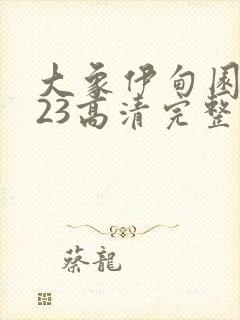 大象伊甸园
23高清完整
蔡龍